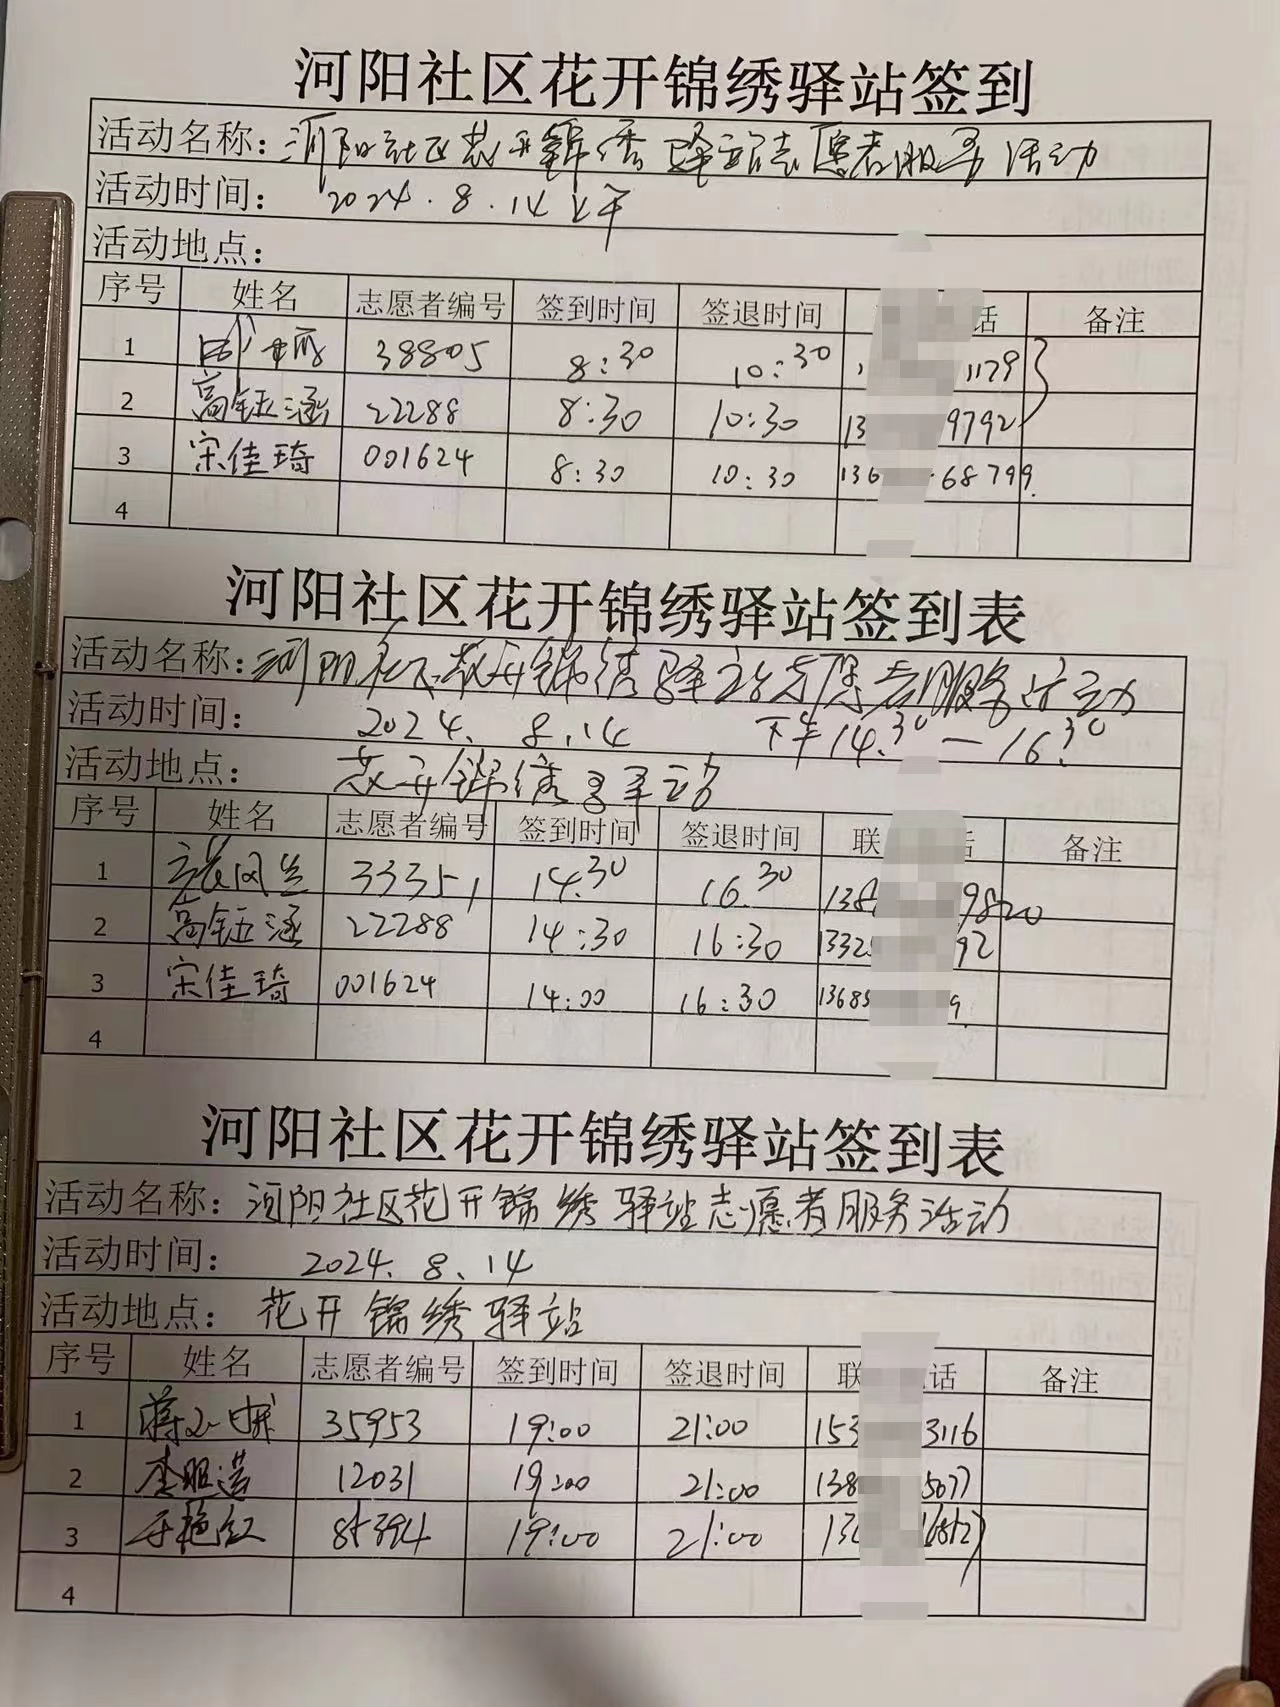 河阳社区花开锦绣驿站签到
活动名称：河阳社区花开锦绣驿站志愿者服务活动
活动时间： 2024.8.14上午
活动地点：
序号 姓名 志愿者编号 签到时间 签退时间 话 备注
1 38805 8:30 10:30 1179
2 高钰涵 22288 8:30 10:30 13 9792
3 宋佳琦 001624 8:30 10:30 136 68799
4
河阳社区花开锦绣驿站签到表
活动名称：河阳社区花开锦绣驿站志愿者服务活动
活动时间： 2024.8.14 下午14:30—16:30
活动地点： 花开锦绣驿站
序号 姓名 志愿者编号 签到时间 签退时间 联 话 备注
1 33351 14:30 16:30 138 9820
2 高钰涵 22288 14:30 16:30 1332 92
3 宋佳琦 001624 14:00 16:30 1368 9
4
河阳社区花开锦绣驿站签到表
活动名称：河阳社区花开锦绣驿站志愿者服务活动
活动时间： 2024.8.14
活动地点： 花开锦绣驿站
序号 姓名 志愿者编号 签到时间 签退时间 联 话 备注
1 35953 19:00 21:00 153 3116
2 12031 19:00 21:00 138 5077
3 85394 19:00 21:00 13
4